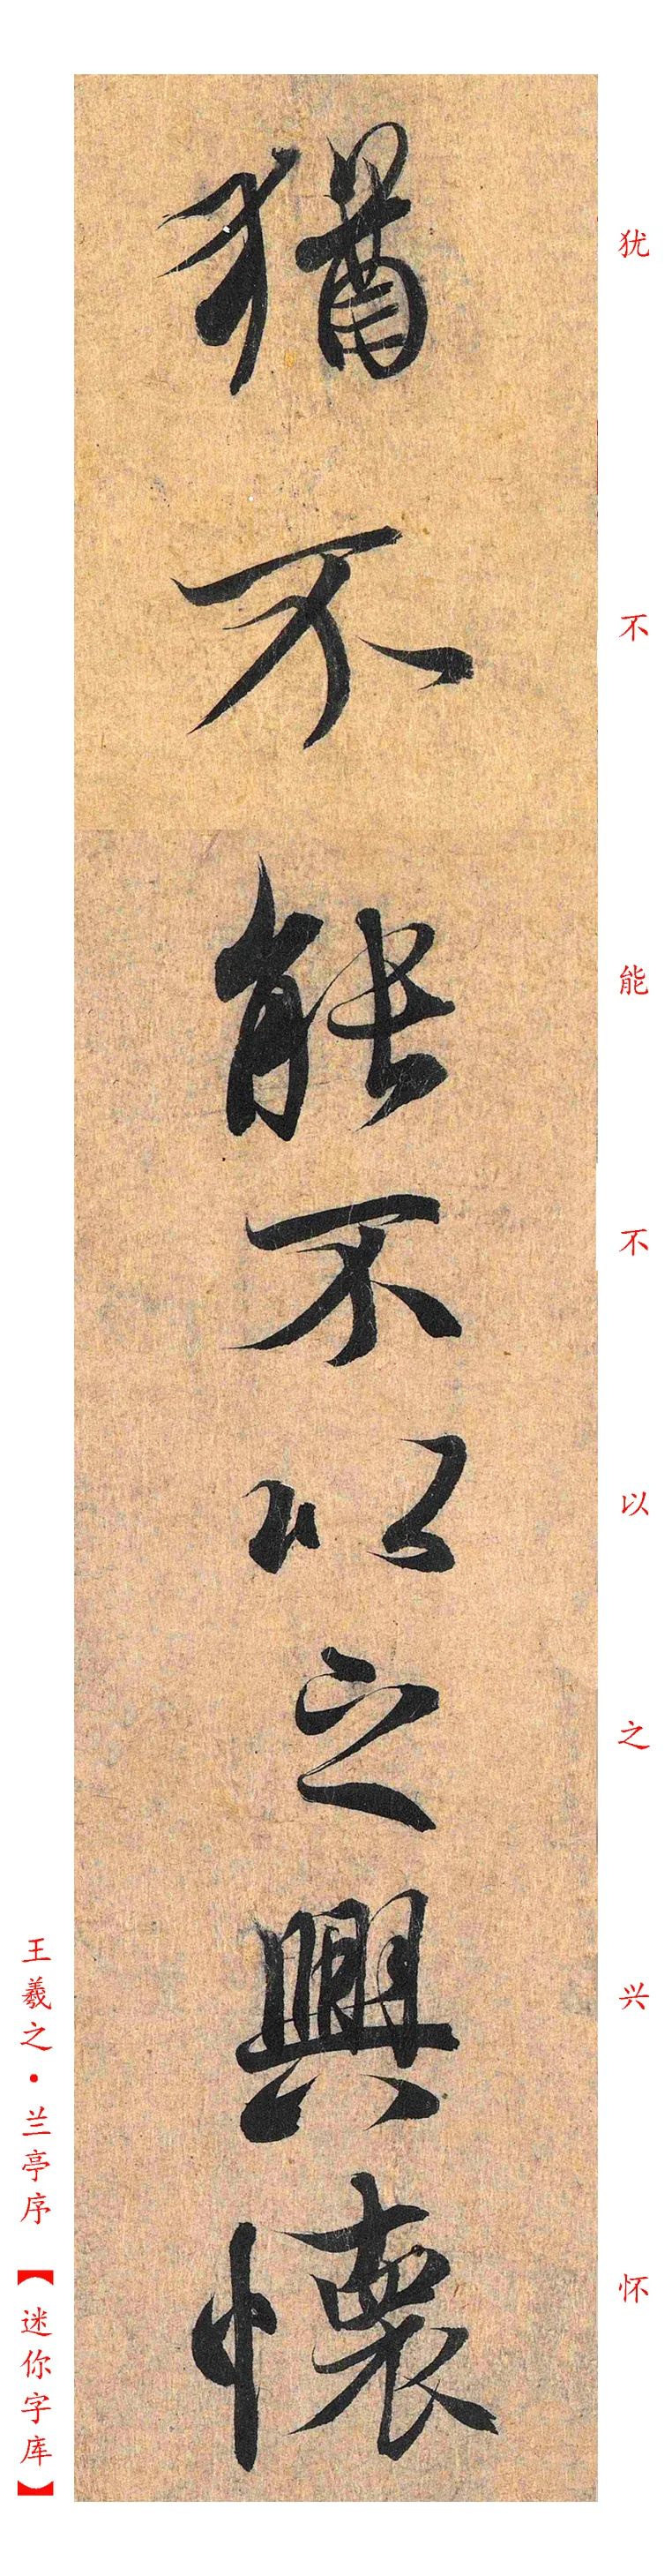 猶不能不以之興懷
犹不能不以之兴怀
王羲之·兰亭序【迷你字库】